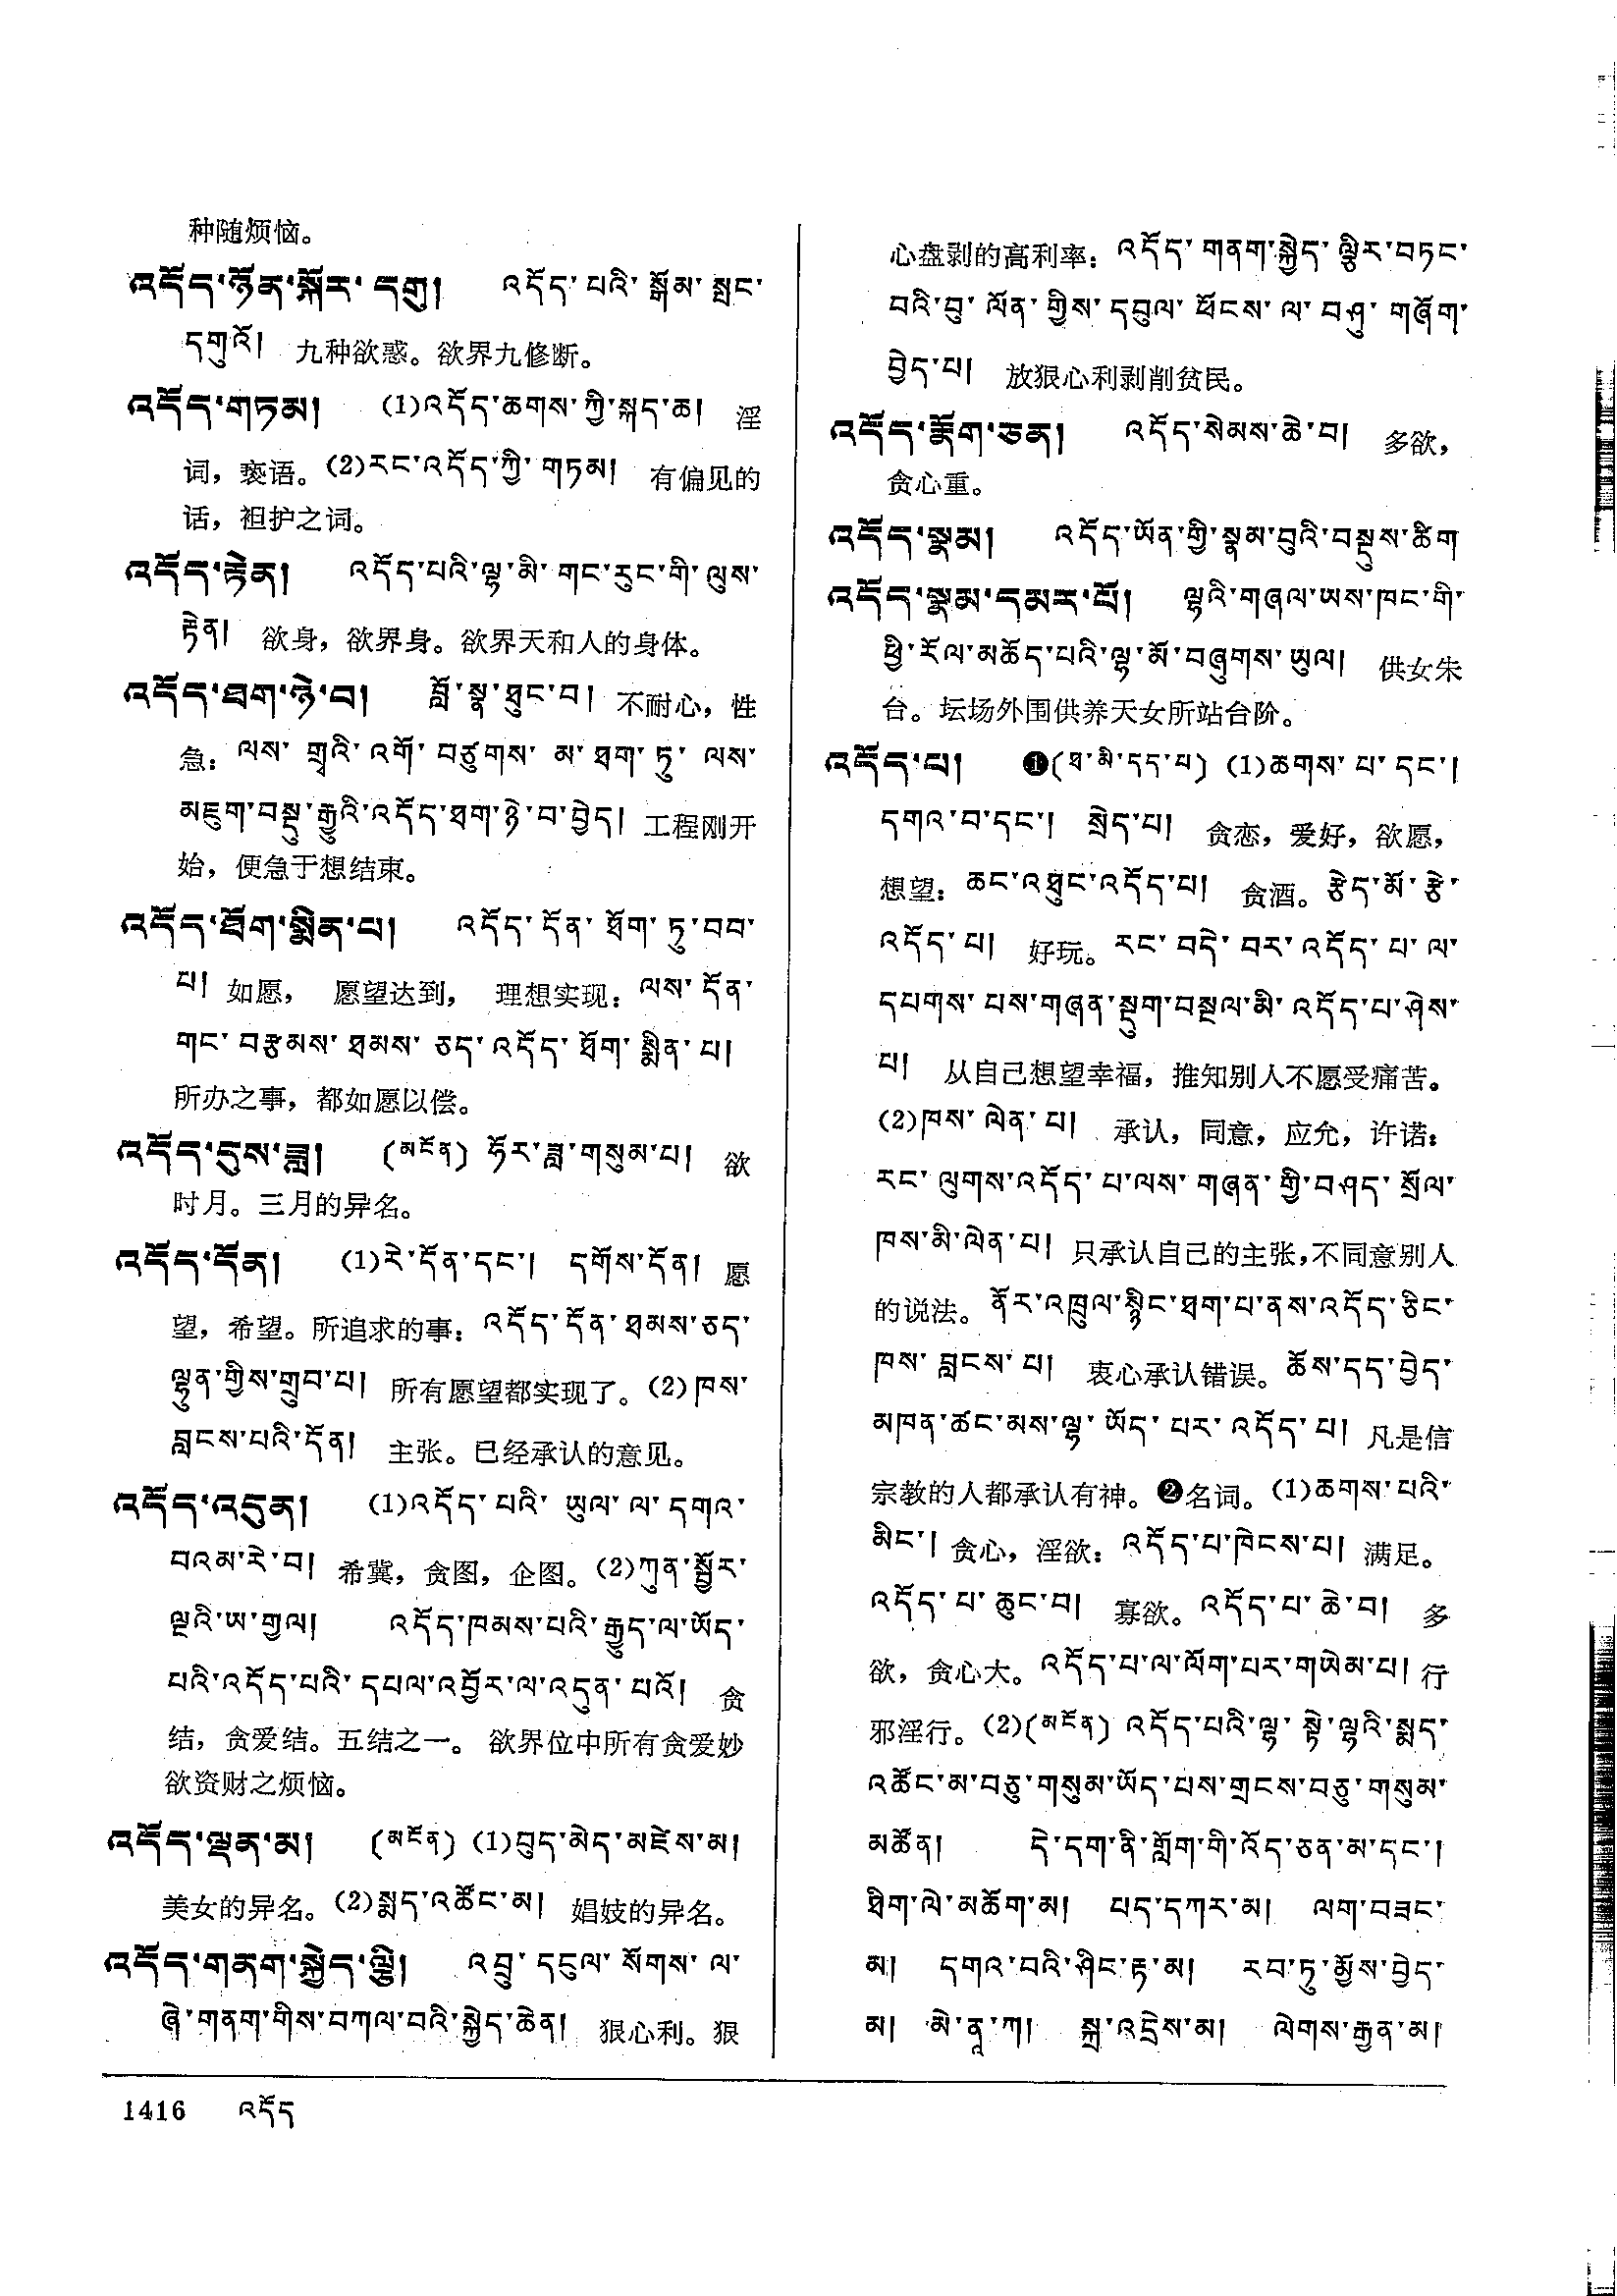 种随烦恼。
འདོད་ཉོན་སྐོར་དགུ། འདོད་པའི་སྒོམ་སྤང་
དགུའོ། 九种欲惑。欲界九修断。
འདོད་གཏམ། (1)འདོད་ཆགས་ཀྱི་སྐད་ཆ། 淫
词，亵语。(2)རང་འདོད་ཀྱི་གཏམ། 有偏见的
话，袒护之词。
འདོད་རྟེན། འདོད་པའི་ལྷ་མི་གང་རུང་གི་ལུས་
རྟེན། 欲身，欲界身。欲界天和人的身体。
འདོད་ཐག་ཉེ་བ། བློ་སྣ་ཐུང་བ། 不耐心，性
急：ལས་གྲྭའི་འགོ་བཙུགས་མ་ཐག་ཏུ་ལས་
མཇུག་བསྡུ་རྒྱུའི་འདོད་ཐག་ཉེ་བ་བྱེད། 工程刚开
始，便急于想结束。
འདོད་ཐོག་སྨིན་པ། འདོད་དོན་ཐོག་ཏུ་བབ་
པ། 如愿，愿望达到，理想实现：ལས་དོན་
གང་བརྩམས་ཐམས་ཅད་འདོད་ཐོག་སྨིན་པ།
所办之事，都如愿以偿。
འདོད་དུས་ཟླ། (མངོན) ཧོར་ཟླ་གསུམ་པ། 欲
时月。三月的异名。
འདོད་དོན། (1)རེ་དོན་དང་། དགོས་དོན། 愿
望，希望。所追求的事：འདོད་དོན་ཐམས་ཅད་
ལྷུན་གྱིས་གྲུབ་པ། 所有愿望都实现了。(2)ཁས་
བླངས་པའི་དོན། 主张。已经承认的意见。
འདོད་འདུན། (1)འདོད་པའི་ཡུལ་ལ་དགའ་
བའམ་རེ་བ། 希冀，贪图，企图。(2)ཀུན་སྦྱོར་
ལྔའི་ཡ་གྱལ། འདོད་ཁམས་པའི་རྒྱུད་ལ་ཡོད་
པའི་འདོད་པའི་དཔལ་འབྱོར་ལ་འདུན་པའོ། 贪
结，贪爱结。五结之一。欲界位中所有贪爱妙
欲资财之烦恼。
འདོད་ལྡན་མ། (མངོན) (1)བུད་མེད་མཛེས་མ།
美女的异名。(2)སྨད་འཚོང་མ། 娼妓的异名。
འདོད་གནག་སྐྱེད་ལྕི། འབྲུ་དངུལ་སོགས་ལ་
ཞེ་གནག་གིས་བཀལ་བའི་སྐྱེད་ཆེན། 狠心利。狠
心盘剥的高利率：འདོད་གནག་སྐྱེད་ལྕིར་བཏང་
བའི་བུ་ལོན་གྱིས་དབུལ་ཕོངས་ལ་བཤུ་གཞོག་
བྱེད་པ། 放狠心利剥削贫民。
འདོད་རྣོག་ཅན། འདོད་སེམས་ཆེ་བ། 多欲，
贪心重。
འདོད་སྣམ། འདོད་ཡོན་གྱི་སྣམ་བུའི་བསྡུས་ཚིག
འདོད་སྣམ་དམར་པོ། ལྷའི་གཞལ་ཡས་ཁང་གི་
ཕྱི་རོལ་མཆོད་པའི་ལྷ་མོ་བཞུགས་ཡུལ། 供女朱
台。坛场外围供养天女所站台阶。
འདོད་པ། ❶(ཐ་མི་དད་པ) (1)ཆགས་པ་དང་།
དགའ་བ་དང་། སྲེད་པ། 贪恋，爱好，欲愿，
想望：ཆང་འཐུང་འདོད་པ། 贪酒。རྩེད་མོ་རྩེ་
འདོད་པ། 好玩。རང་བདེ་བར་འདོད་པ་ལ་
དཔགས་པས་གཞན་སྡུག་བསྔལ་མི་འདོད་པ་ཤེས་
པ། 从自己想望幸福，推知别人不愿受痛苦。
(2)ཁས་ལེན་པ། 承认，同意，应允，许诺：
རང་ལུགས་འདོད་པ་ལས་གཞན་གྱི་བཤད་སྲོལ་
ཁས་མི་ལེན་པ། 只承认自己的主张,不同意别人
的说法。ནོར་འཁྲུལ་སྙིང་ཐག་པ་ནས་འདོད་ཅིང་
ཁས་བླངས་པ། 衷心承认错误。ཆོས་དད་བྱེད་
མཁན་ཚང་མས་ལྷ་ཡོད་པར་འདོད་པ། 凡是信
宗教的人都承认有神。❷名词。(1)ཆགས་པའི་
མིང་། 贪心，淫欲：འདོད་པ་ཁེངས་པ། 满足。
འདོད་པ་ཆུང་བ། 寡欲。འདོད་པ་ཆེ་བ། 多
欲，贪心大。འདོད་པ་ལ་ལོག་པར་གཡེམ་པ། 行
邪淫行。(2)(མངོན) འདོད་པའི་ལྷ་སྟེ་ལྷའི་སྨད་
འཚོང་མ་བཅུ་གསུམ་ཡོད་པས་གྲངས་བཅུ་གསུམ་
མཚོན། དེ་དག་ནི་གློག་གི་འོད་ཅན་མ་དང་།
ཐིག་ལེ་མཆོག་མ། པད་དཀར་མ། ལག་བཟང་
མ། དགའ་བའི་ཤིང་རྟ་མ། རབ་ཏུ་མྱོས་བྱེད་
མ། མེ་ནཱ་ཀ། སྐྲ་འདྲེས་མ། ལེགས་རྒྱན་མ།
1416 འདོད